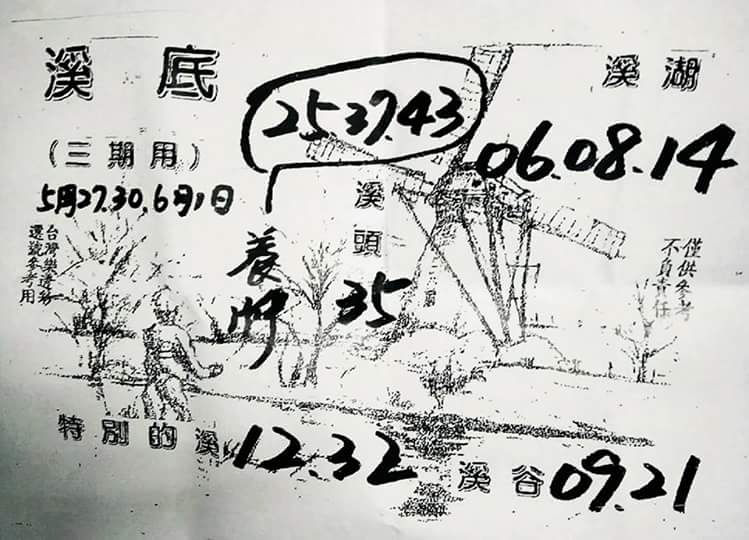 溪底
溪湖
25.37.43
06.08.14
(三期用)
5月27.30.6月1日
溪頭
35
養牌
台灣樂透彩
選號參考用
僅供參考
不負責任
特別的溪 12.32
溪谷 09.21